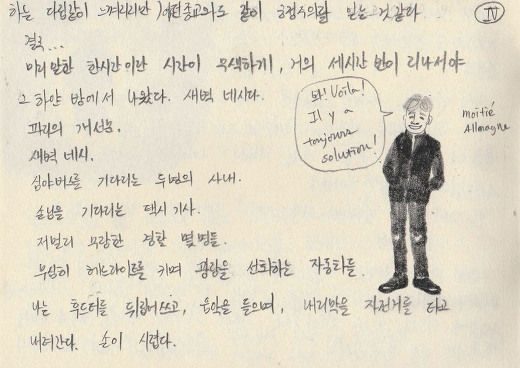 하는 다람같이 느껴리리만) 어떤종교와도 같이 융점수의랄 있는것 같다
IV
결국...
미리 말한 한시간이란 시간이 무색하기, 거의 세시간 반이 리나서야
그 하얀 방에서 나왔다. 새벽 네시다.
파리의 개선문.
새벽 네시.
심야버스를 기다리는 두명의 사내.
손님을 기다리는 택시 기사.
저멀리 무장한 경찰 몇명들.
무심히 헤드라이트를 키며 광장을 선회하는 자동차들.
나는 후드티를 뒤집어쓰고, 음악을 들으며, 내리막을 자전거를 타고
내려간다. 손이 시렵다.
봐! Voila!
Il y a
toujours
solution!
moitié
Allmagne